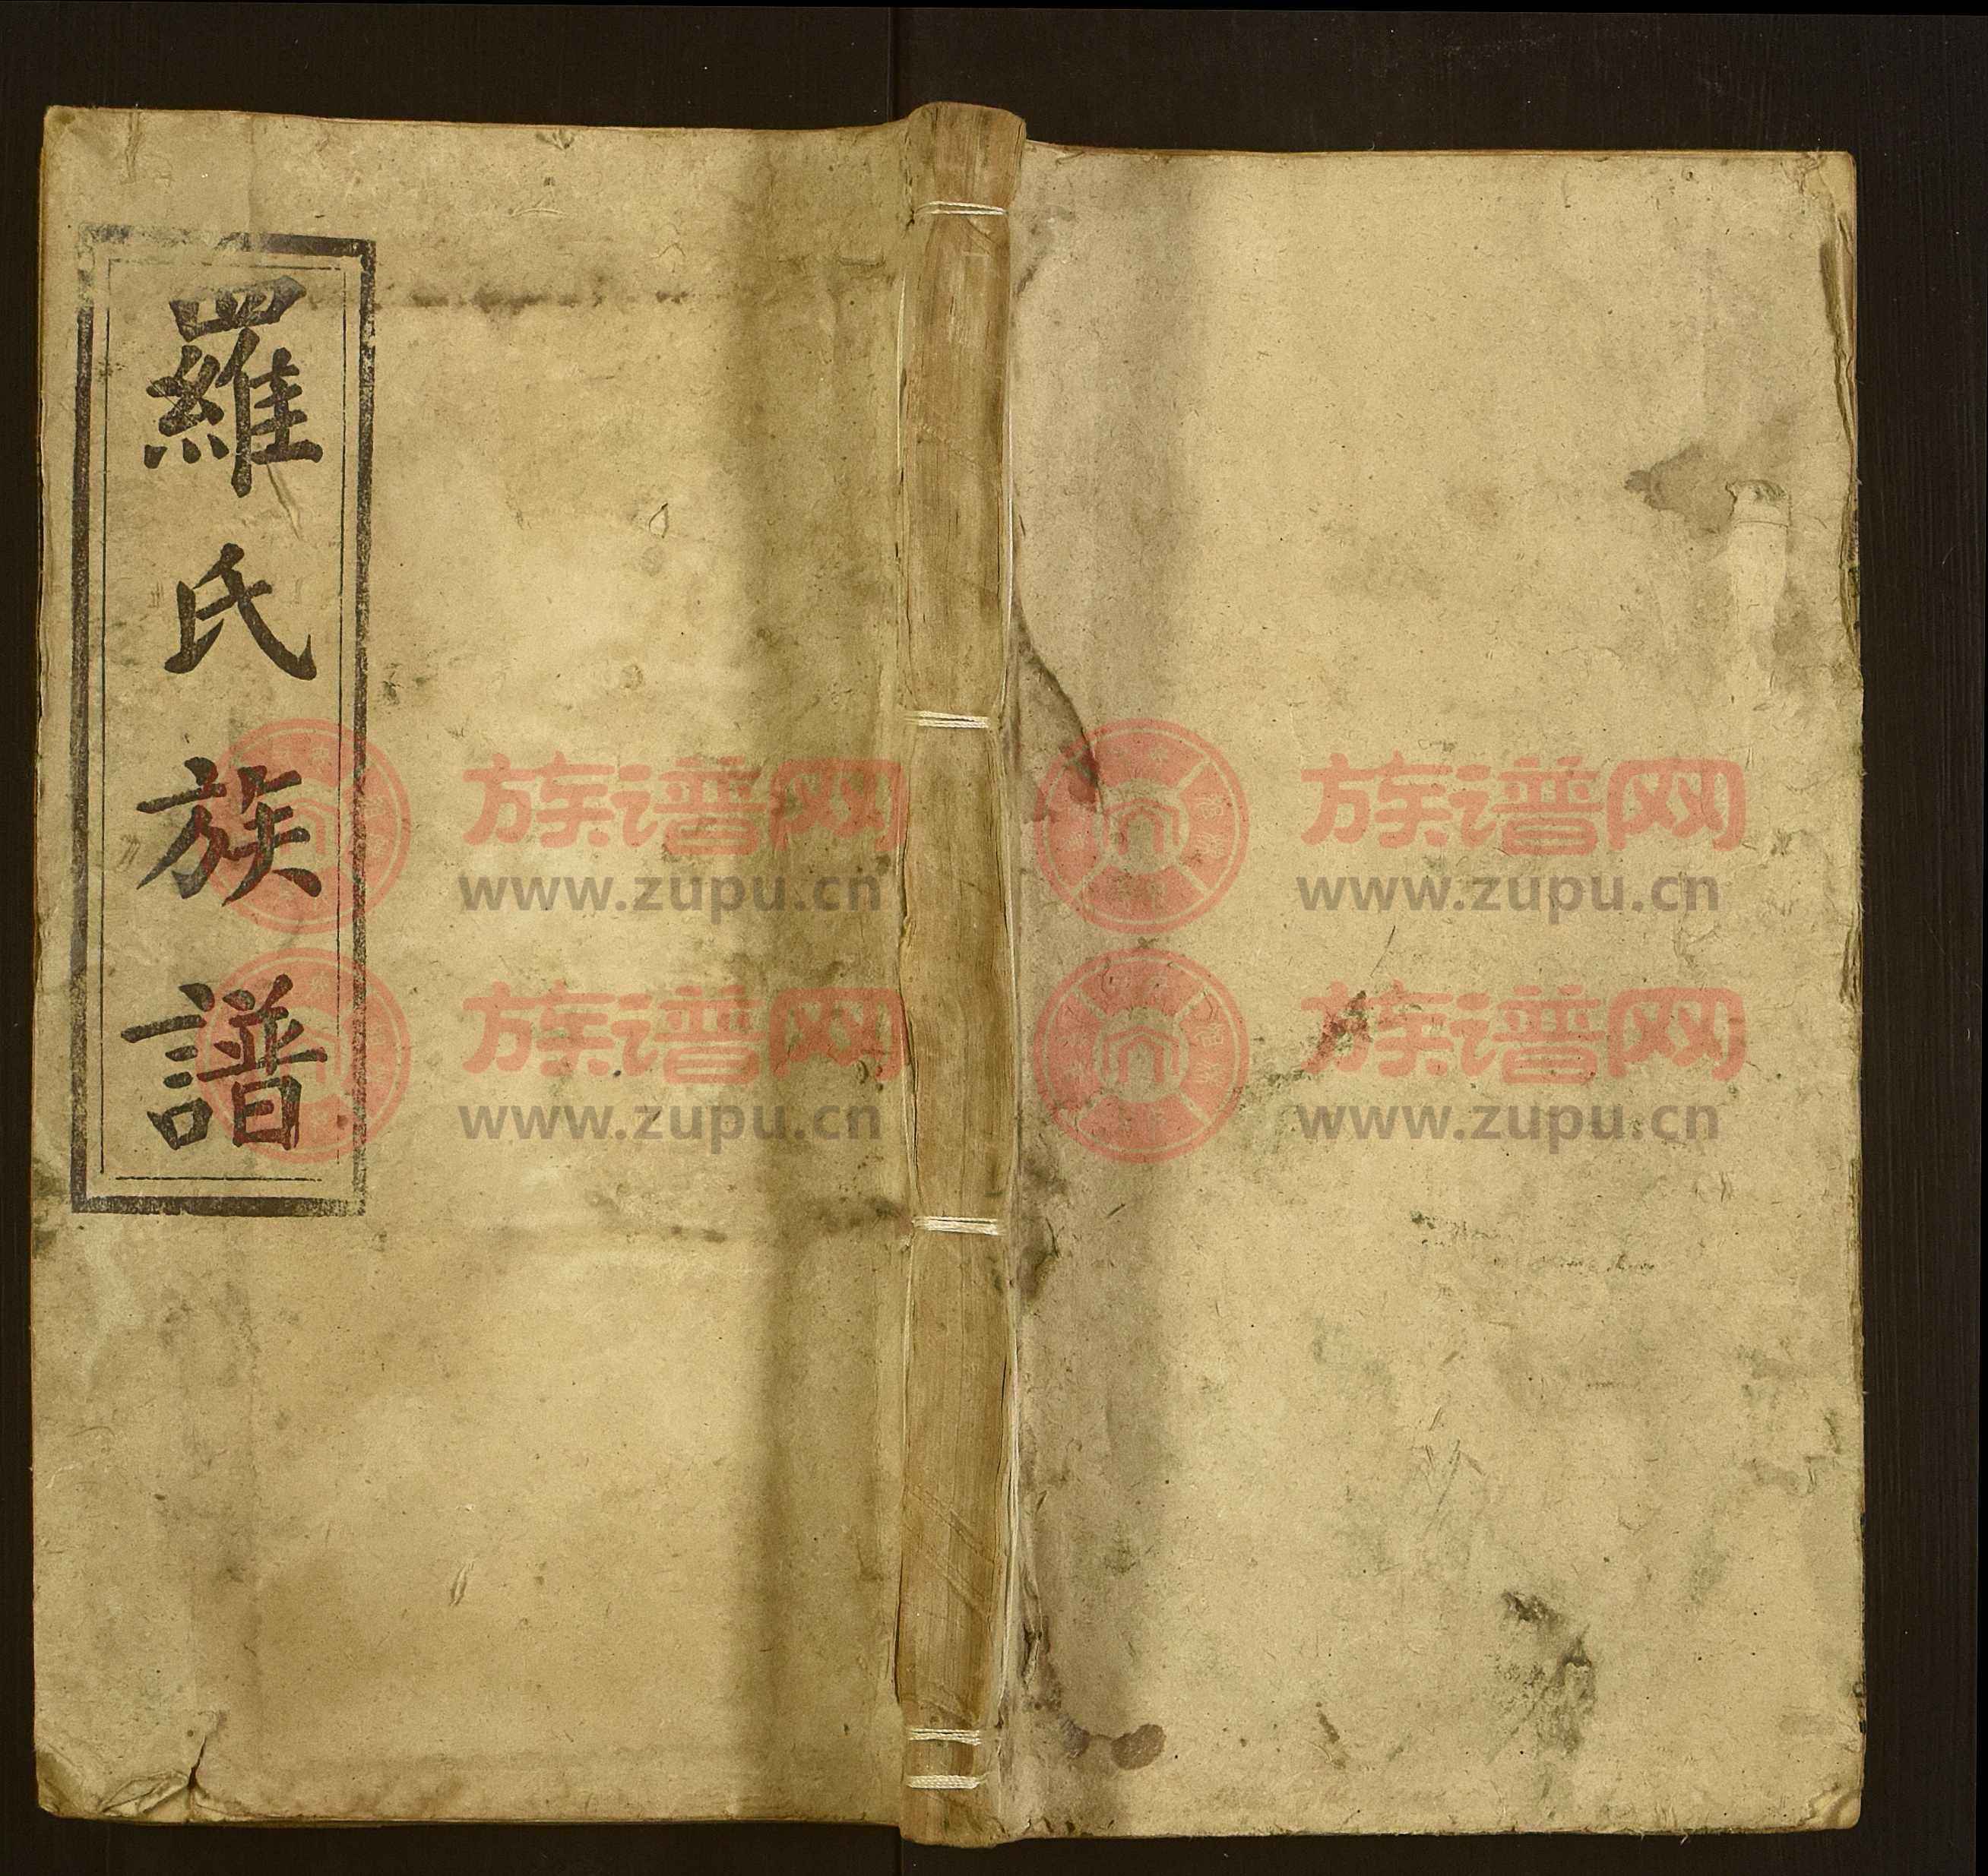 羅氏族譜
族谱网
www.zupu.cn
族谱网
www.zupu.cn
族谱网
www.zupu.cn
族谱网
www.zupu.cn